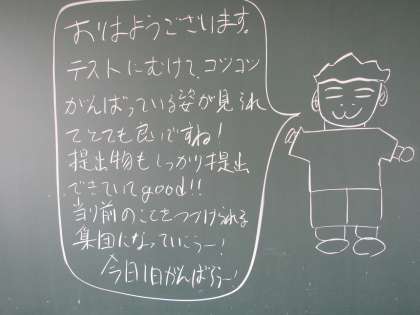 おはようございます。
テストにむけて、コツコツ
がんばっている姿が見られ
てとても良いですね!
提出物もしっかり提出
できていてgood!!
当り前のことをつづけられる
集団になっていこうー!
今日1日がんばろうー!